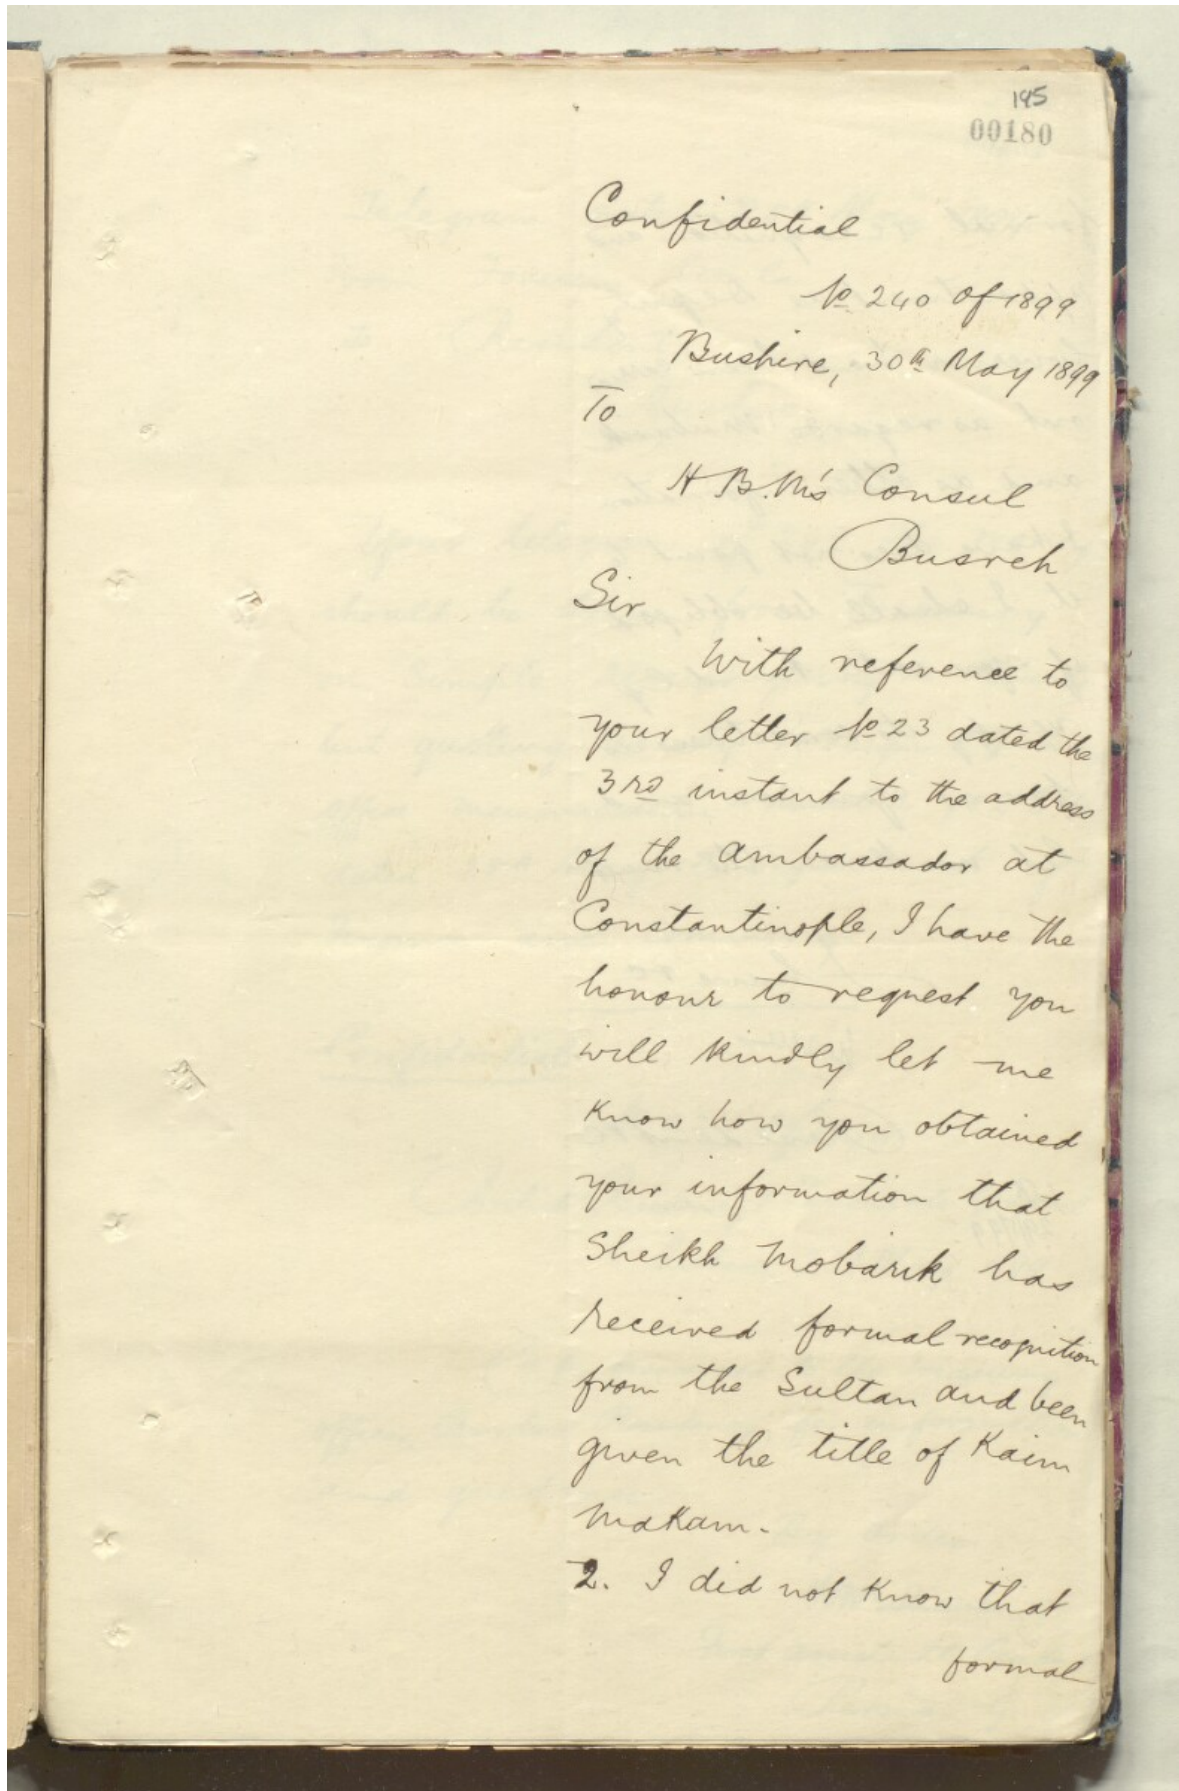 195
00180
Confidential
No 240 of 1899
Bushire, 30th May 1899
To
H B.M's Consul
Busreh
Sir
With reference to
your letter No 23 dated the
3rd instant to the address
of the Ambassador at
Constantinople, I have the
honour to request you
will kindly let me
know how you obtained
your information that
Sheikh Mobarik has
received formal recognition
from the Sultan and been
given the title of Kaim
Makam.
2. I did not know that
formal